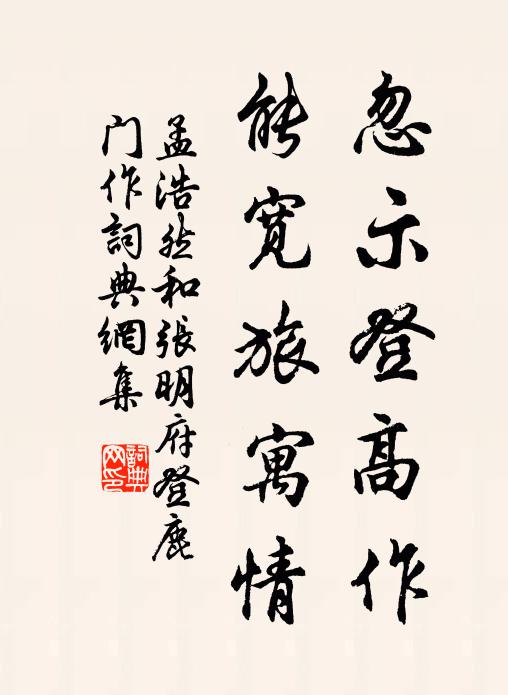 忽示登高作
能宽旅寓情
孟浩然和张明府登鹿
门作词典網集
詞典网印